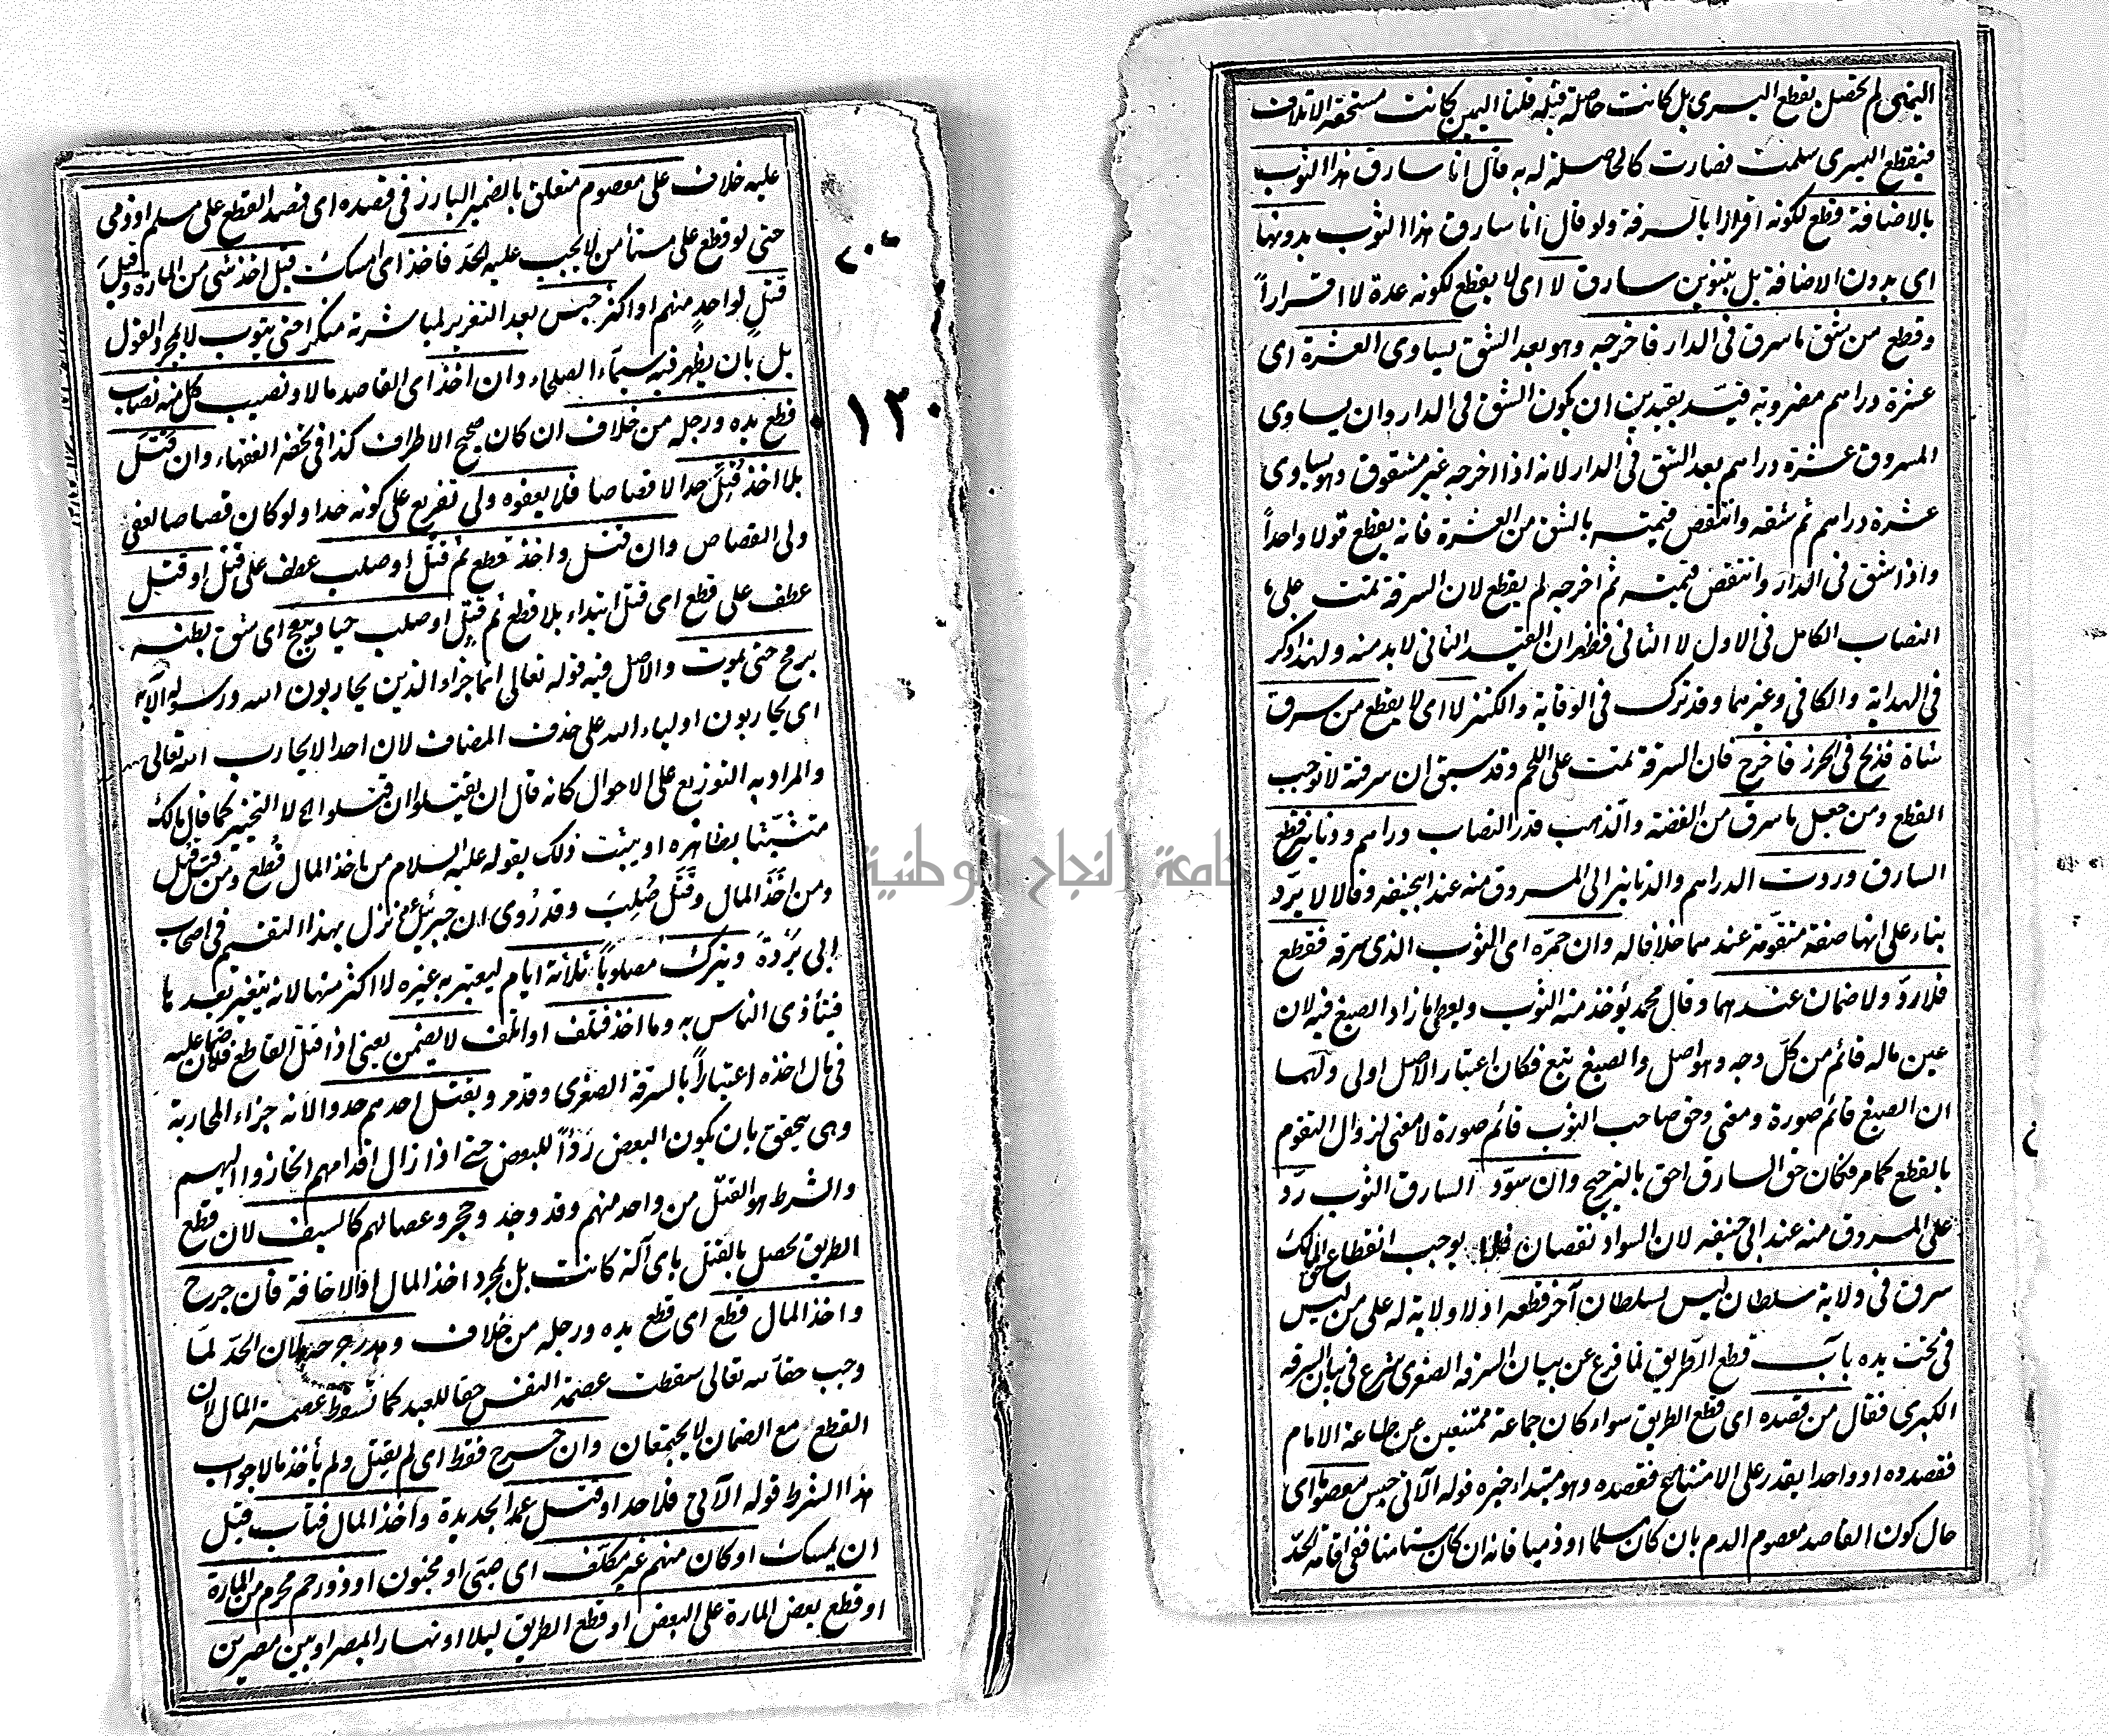 اليمنى لم تحصل بقطع اليسرى بل كانت حاصلة قبله قلنا اليمين كانت مستحقة الاتلاف
فبقطع اليسرى سلمت فصارت كالحاصلة له به قال انا سارق هذا الثوب
بالاضافة قطع لكونه اقرارا بالسرقة ولو قال انا سارق هذا الثوب بدونها
اى بدون الاضافة بل بتنوين سارق لا اى لا يقطع لكونه عدة لا اقراراً
وقطع من شق ما سرق فى الدار فاخرجه وهو بعد الشق يساوى العشرة اى
عشرة دراهم مضروبة قيّد بقيدين ان يكون الشق فى الدار وان يساوى
المسروق عشرة دراهم بعد الشق فى الدار لانه اذا اخرجه غير مشقوق وهو يساوى
عشرة دراهم ثم شقه وانتقص قيمته بالشق من العشرة فانه يقطع قولا واحداً
واذا شق فى الدار وانتقص قيمته ثم اخرجه لم يقطع لان السرقة تمت على
النصاب الكامل فى الاول لا الثانى فظهر ان القيد الثانى لا بد منه ولهذا ذكر
فى الهداية والكافى وغيرهما وقد ترك فى الوقاية والكنز لا اى لا يقطع من سرق
شاة فذبح فى الحرز فاخرج فان السرقة تمت على اللحم وقد سبق ان سرقته لا توجب
القطع ومن جعل ما سرق من الفضة والذهب قدر النصاب دراهم ودنانير قطع
السارق وردت الدراهم والدنانير الى المسروق منه عند ابيحنيفه وقالا لا يردّ
بناء على انها صنعة متقومة عندهما خلافا له وان حمّره اى الثوب الذى سرقه فقطع
فلا ردّ ولا ضمان عندهما وقال محمد يؤخذ منه الثوب ويعطى ما زاد الصبغ فيه لان
عين ماله قائم من كلّ وجه وهو اصل والصبغ تبع فكان اعتبار الاصل اولى ولهما
ان الصبغ قائم صورة ومعنى وحق صاحب الثوب قائم صورة لا معنى لزوال التقوم
بالقطع كما مر فكان حق السارق احق بالترجيح وان سوّد السارق الثوب ردّ
على المسروق منه عند ابى حنيفه لان السواد نقصان فلا يوجب انقطاع حق المالك
سرق فى ولاية سلطان ليس لسلطان آخر قطعه اذ لا ولاية له على من ليس
فى تحت يده باب قطع الطريق لما فرغ عن بيان السرقه الصغرى شرع فى بيان السرقه
الكبرى فقال من قصده اى قطع الطريق سواء كان جماعة ممتنعين عن طاعة الامام
فقصدوه او واحدا يقدر على الامتناع فقصده وهو مبتداء خبره قوله الآتى حبس معصوما اى
حال كون القاصد معصوم الدم بان كان مسلما او ذميا فانه ان كان مستأمنا ففى اقامة الحدّ
عليه خلاف على معصوم متعلق بالضمير البارز فى قصده اى قصد القطع على مسلم او ذمى
حتى لو قطع على مستأمن لا يجب عليه الحد فاخذ اى امسك قبل اخذ شى من المارة وقبل
قتل لواحدٍ منهم او اكثر حبس بعد التعزير لمباشرته منكرا حتى يتوب لا بمجرد القول
بل بان يظهر فيه سيماء الصلحاء وان اخذ اى القاصد مالا ونصيب كل منه نصاب
قطع يده ورجله من خلاف ان كان صحيح الاطراف كذا فى تحفة الفقهاء وان قتل
بلا اخذ قُتِلَ حدا لا قصاصا فلا يعفوه ولى تفريع على كونه حدا ولو كان قصاصا لعفى
ولى القصاص وان قتل واخذ قطع ثم قتل او صلب عطف على قتل او قتل
عطف على قطع اى قتل ابتداء بلا قطع ثم قتل او صلب حيا ويبعج اى شق بطنه
برمح حتى يموت والاصل فيه قوله تعالى انما جزاء الذين يحاربون الله ورسوله الآية
اى يحاربون اولياء الله على حذف المضاف لان احدا لا يحارب الله تعالى
والمراد به التوزيع على الاحوال كانه قال ان يقتلوا ان قتلوا الخ لا التخيير كما قال مالك
متشبثا بظاهره او يثبت ذلك بقوله عليه السلام من اخذ المال قُطع ومن قتل قُتل
ومن اخَذ المال وقَتَل صُلِبَ وقد رُوى ان جبرئيل عم نزل بهذا التقسيم فى اصحاب
ابى بردة ويترك مصلوباً ثلاثة ايام ليعتبر به غيره لا اكثر منها لانه يتغير بعدها
فيتأذى الناس به وما اخذ فتلف او اتلف لا يضمن يعنى اذا قتل القاطع فلا ضمان عليه
فى مال اخذه اعتباراً بالسرقة الصغرى وقد مر ويقتل احدهم حدوا لانه جزاء المحاربة
وهى يتحقق بان يكون البعض ردْأً للبعض حتى اذا زال اقدامهم انحازوا اليهم
والشرط هو القتل من واحد منهم وقد وجد وحجر وعصا لهم كالسيف لان قطع
الطريق يحصل بالقتل باى آلة كانت بل بمجرد اخذ المال او الاخافة فان جرح
واخذ المال قطع اى قطع يده ورجله من خلاف وهدر جرحه لان الحدّ لمّا
وجب حقا لله تعالى سقطت عصمة النفس حقا للعبد كما تسقط عصمة المال لان
القطع مع الضمان لا يجتمعان وان جرح فقط اى لم يقتل ولم يأخذ مالا جواب
هذا الشرط قوله الآتى فلا حد او قتل عمدا بحديدة وأخذ المال فتاب قبل
ان يمسك او كان منهم غير مكلّف اى صبّى او مجنون او ذو رحم محرم من المارة
او قطع بعض المارة على البعض او قطع الطريق ليلا او نهارا بمصر او بين مصرين
٢٠٠
١٣٠
جامعة النجاح الوطنية